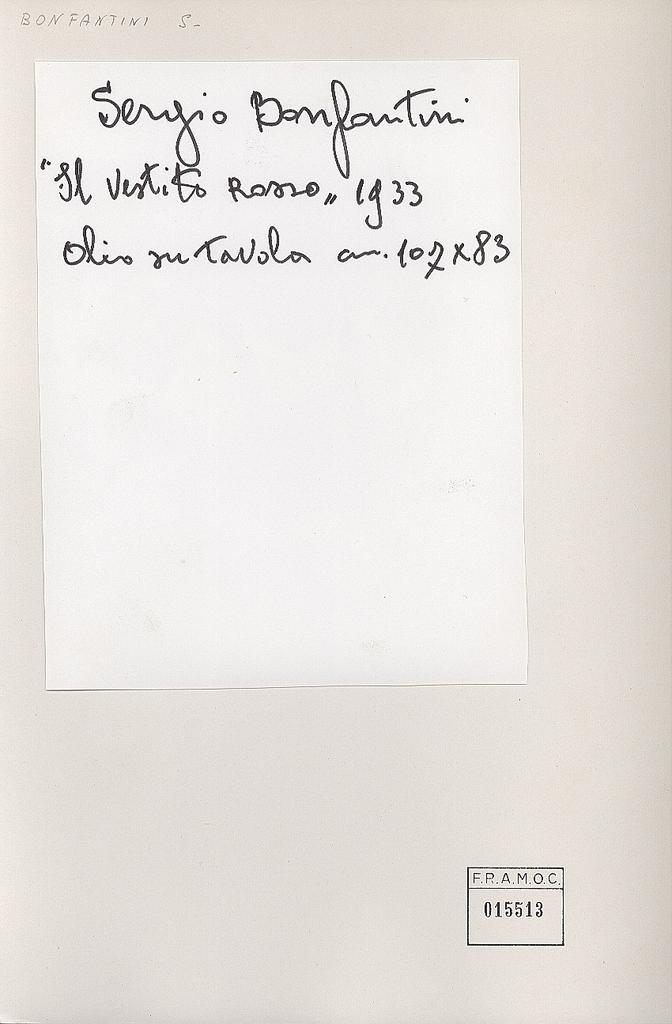 BONFANTINI S-
Sergio Bonfantini
"Il Vestito Rosso„ 1933
Olio su Tavola cm. 107x83
F.R.A.M.O.C.
015513